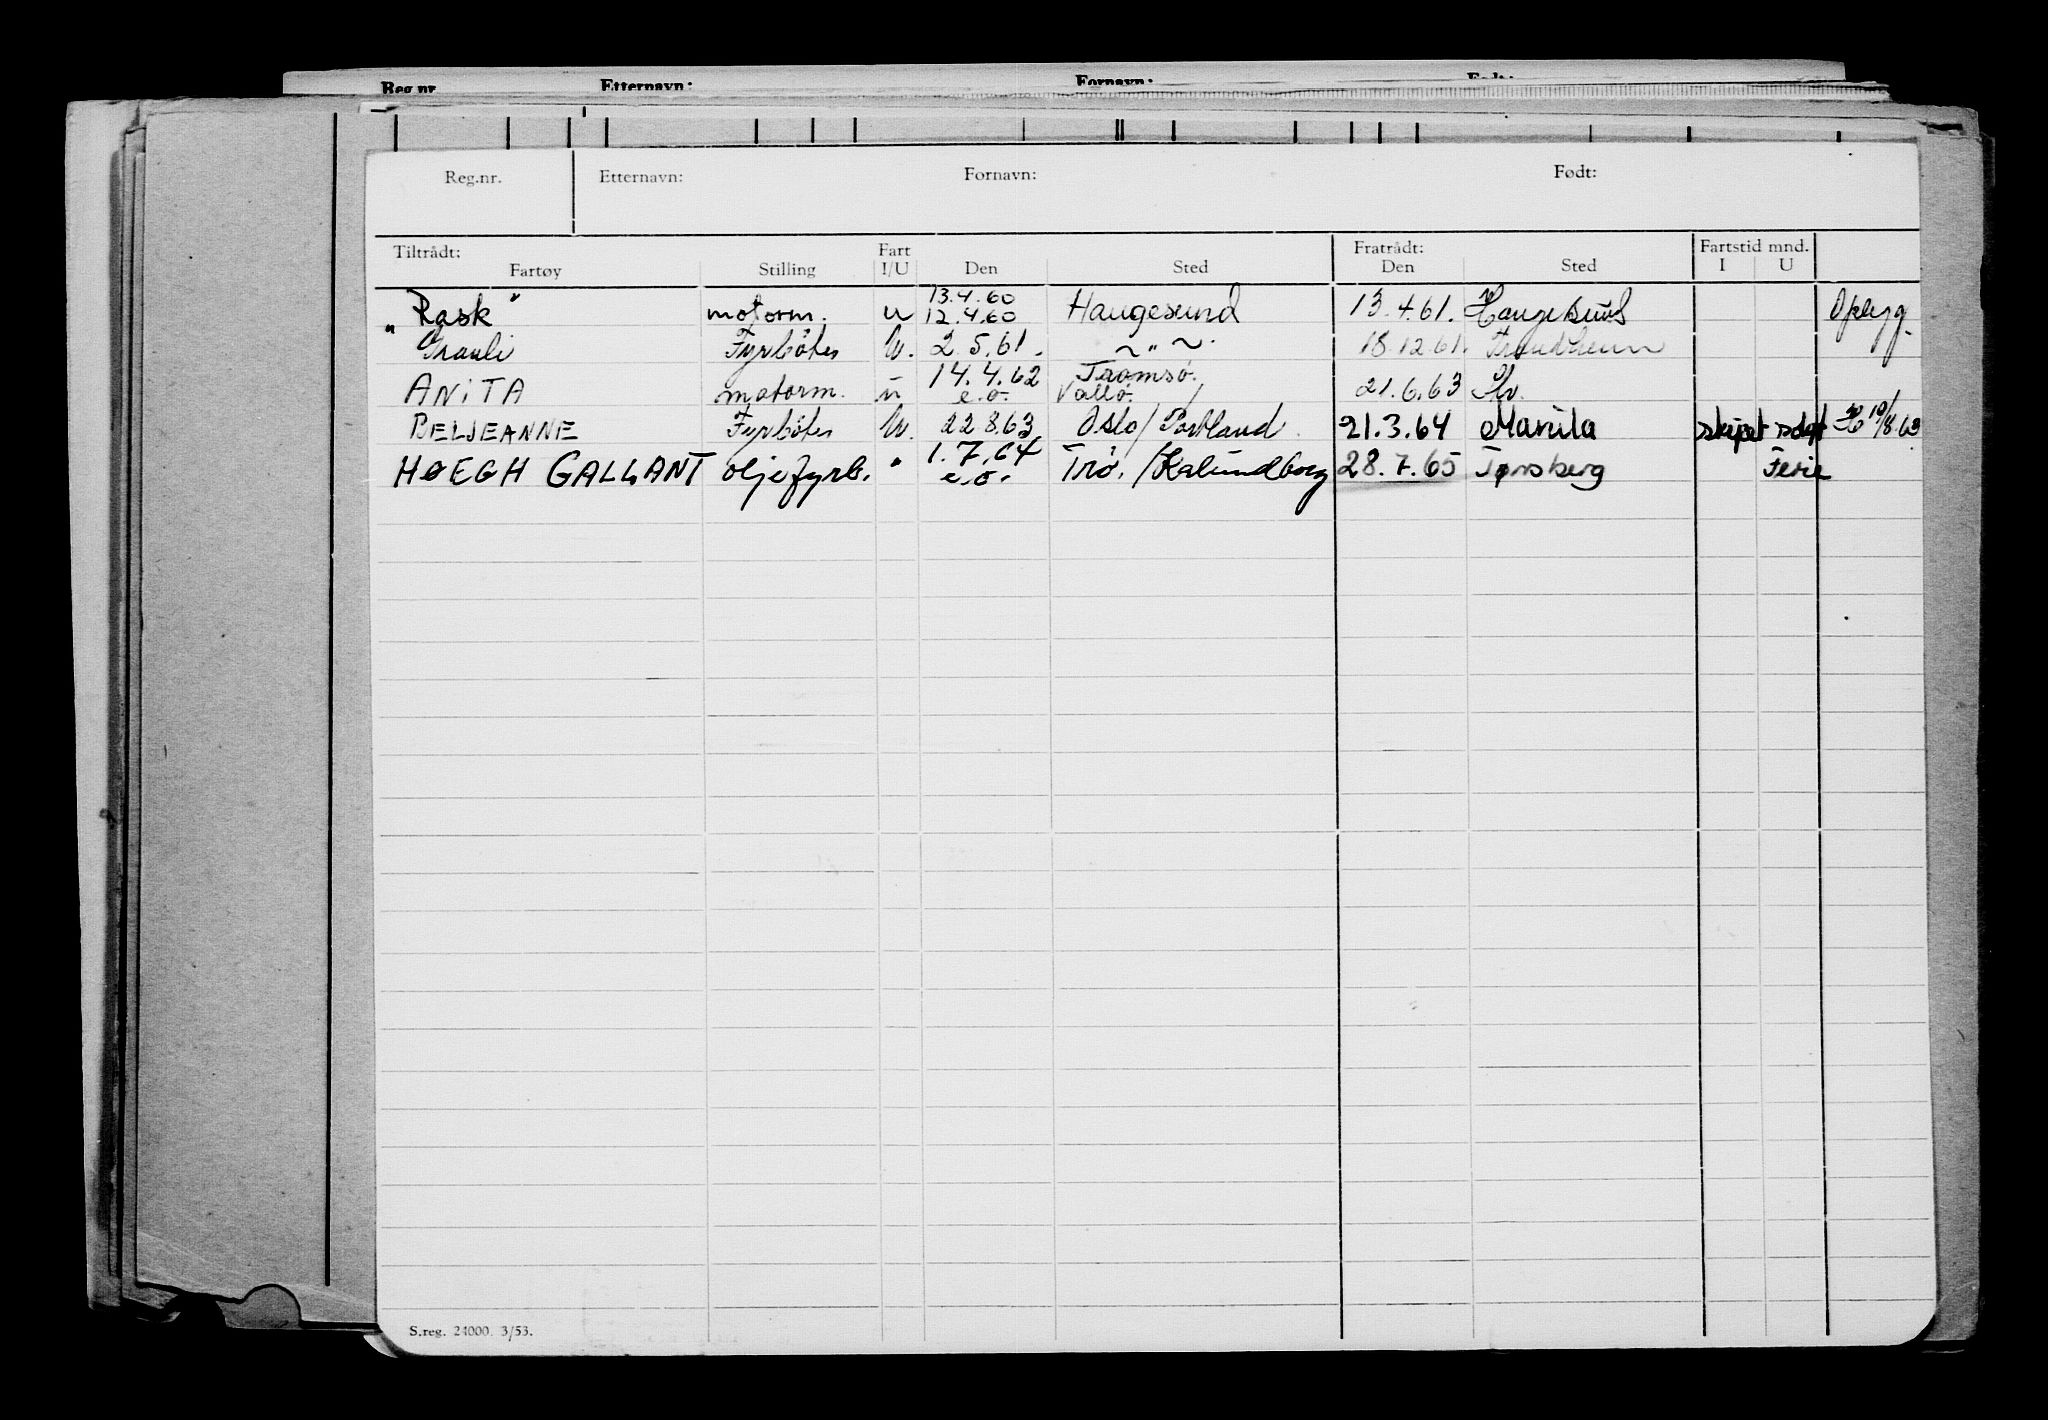 Reg.nr. Etternavn: Fornavn: Født:
Reg.nr. Etternavn: Fornavn: Født:
Tiltrådt: Fart Fratrådt: Fartstid mnd.
Fartøy Stilling I/U Den Sted Den Sted I U
13.4.60
"Rask" motorm. u 12.4.60 Haugesund 13.4.61. Haugesund Oplegg
Grauli Fyrböter U. 2.5.61. ~ " ~ 18.12.61. Trondheim
14.4.62 Tromsö.
ANiTA motorm. u e.o. Vallö. 21.6.63
BELJEANNE Fyrböter U. 22 8 63 Oslo/Portland 21.3.64 Manila skipet solgt 19/8.63
1.7.64
HØEGH GALLANT oljefyrb. " e.o. Trö./Kalundborg 28.7.65 Tønsberg Ferie
S.reg. 24000. 3/53.